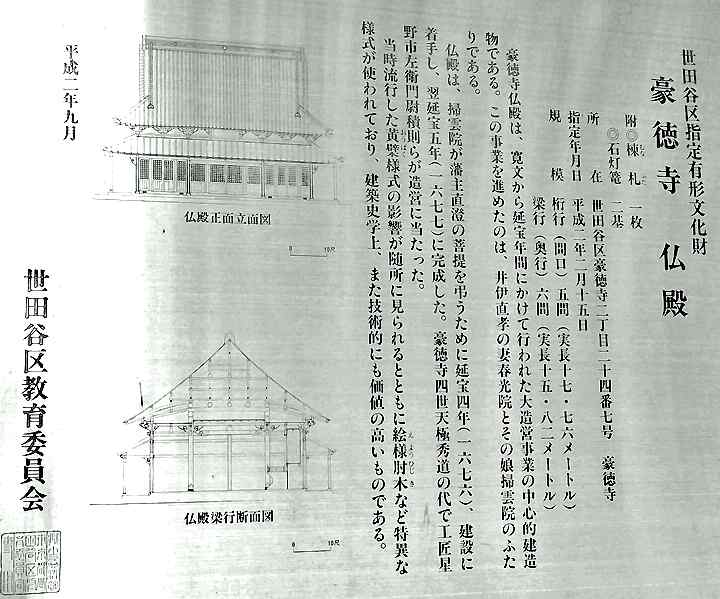 世田谷区指定有形文化財
豪徳寺 仏殿
附◎棟札 一枚
◎石灯篭 二基
所在 世田谷区豪徳寺二丁目二十四番七号 豪徳寺
指定年月日 平成二年二月十五日
規模 桁行（間口）五間（実長十七・七六メートル）
梁行（奥行）六間（実長十五・八二メートル）
豪徳寺仏殿は、寛文から延宝年間にかけて行われた大造営事業の中心的建造
物である。この事業を進めたのは、井伊直孝の妻春光院とその娘掃雲院のふた
りである。
仏殿は、掃雲院が藩主直澄の菩提を弔うために延宝四年（一六七六）、建設に
着手し、翌延宝五年（一六七七）に完成した。豪徳寺四世天極秀道の代で工匠星
野市左衛門尉積則らが造営に当たった。
当時流行した黄檗様式の影響が随所に見られるとともに絵様肘木など特異な
様式が使われており、建築史学上、また技術的にも価値の高いものである。
えようひじき
仏殿正面立面図
0 10尺
仏殿梁行断面図
0 10尺
平成二年九月
世田谷区教育委員会